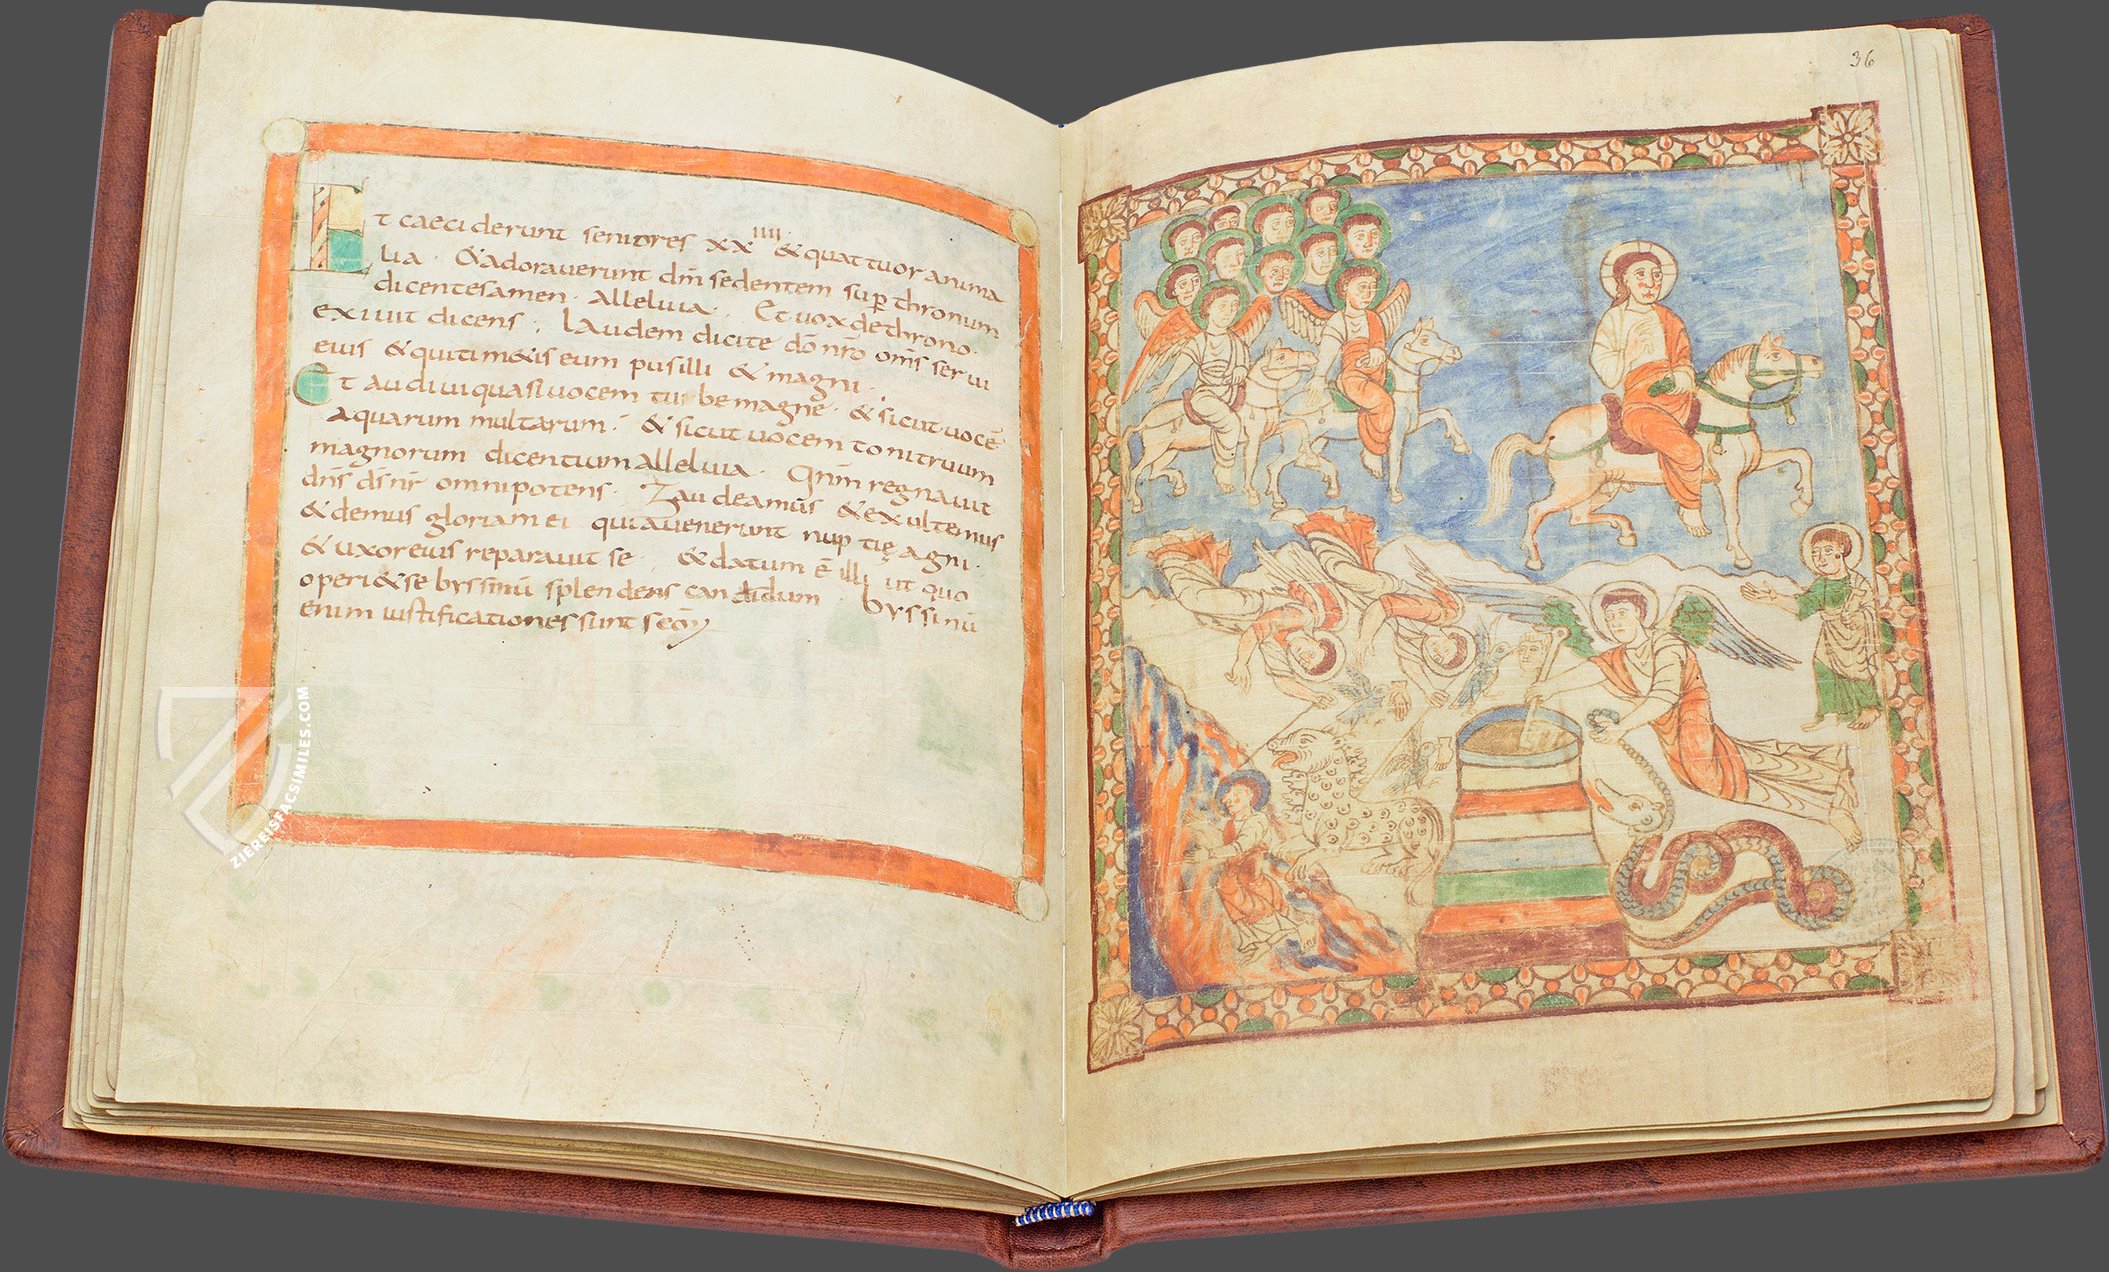 Et caeciderunt seniores xx iiii · & quattuor anima
lia · & adorauerunt dnm sedentem sup thronum
dicentes amen · alleluia · Et uox de throno ·
exiuit dicens · Laudem dicite do nro oms serui
eius & qui tim&is eum pusilli & magni ·
Et audiui quasi uocem tube magne · & sicut uoce
aquarum multarum · & sicut uocem tonitruum
magnorum dicentium alleluia · Qnm regnauit
dns ds nr omnipotens · Gaudeamus & exultemus
& demus gloriam ei quia uenerunt nuptię agni ·
& uxor eius reparauit se · & datum ē illi ut quo
operi&se byssinū splendens candidum · byssinū
enim iustificationes sunt scōꝝ
36
ZIEREISFACSIMILES.COM